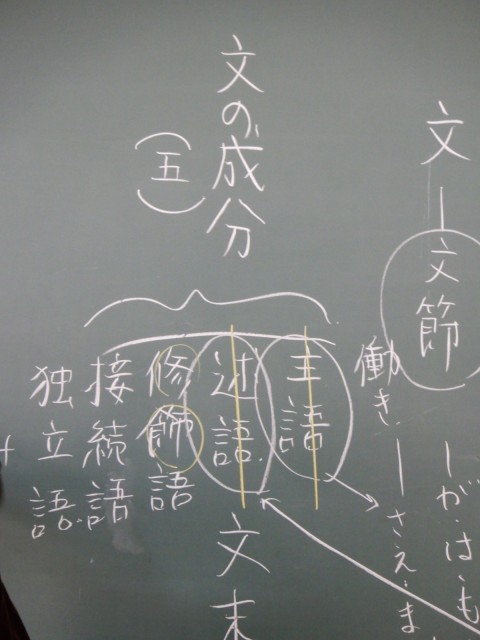 文―文節
―が・は・も
働き
―さえ・ま
文の成分
(五)
主語
述語
文末
修飾語
接続語
独立語